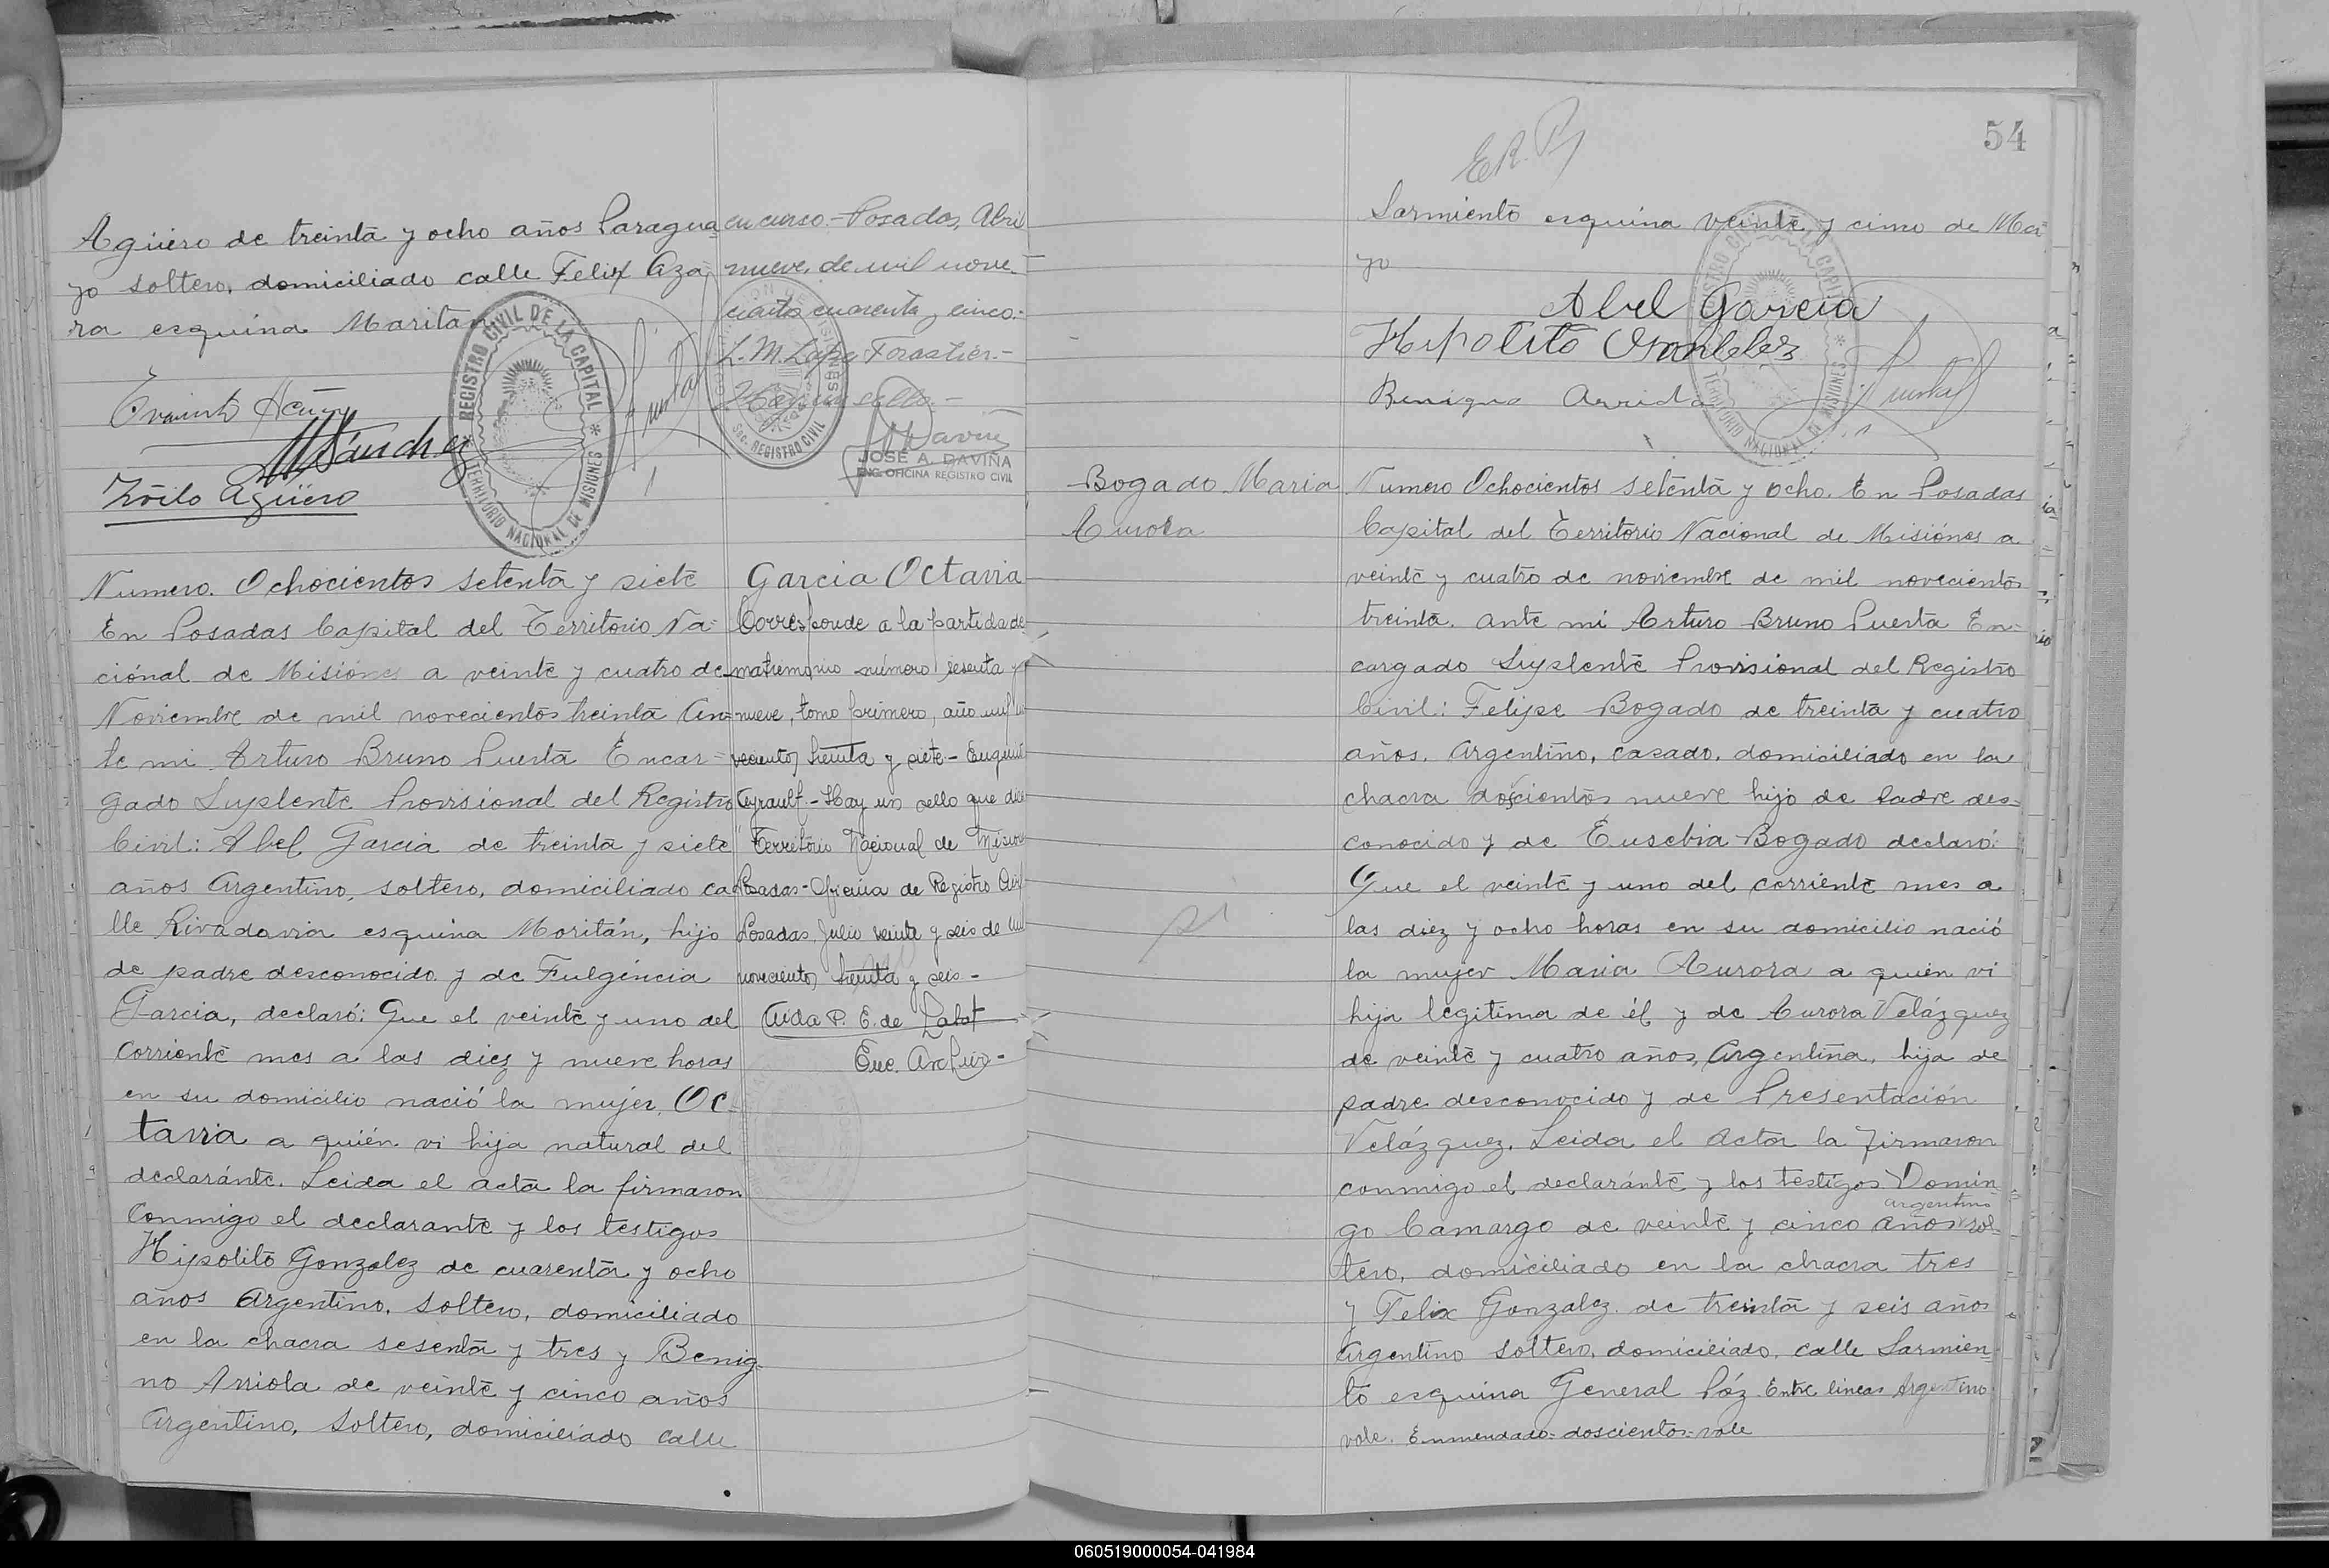 Agüero de treinta y ocho años Paragua
yo soltero, domiciliado calle Felix Aza
ra esquina Maritan
Sánchez
Zoilo Agüero
REGISTRO CIVIL DE LA CAPITAL
TERRITORIO NACIONAL DE MISIONES
en curso.- Posadas, Abril
nueve, de mil nove-
cientos cuarenta y cinco.-
Hay un sello.-
REGISTRO CIVIL
JOSÉ A. DAVIÑA
ENC. OFICINA REGISTRO CIVIL
Numero. Ochocientos setenta y siete
En Posadas Capital del Territorio Na-
ciónal de Misiónes a veinte y cuatro de
Noviembre de mil novecientos treinta An=
te mi Arturo Bruno Puerta Encar=
gado Suplente Provisional del Registro
Civil: Abel Garcia de treinta y siete
años Argentino, soltero, domiciliado ca
lle Rivadavia esquina Moritán, hijo
de padre desconocido y de Fulgéncia
Garcia, declaró: Que el veinte y uno del
corriente mes a las diez y nueve horas
en su domicilio nació la mujer, Oc-
tavia a quién vi hija natural del
declaránte. Leida el acta la firmaron
conmigo el declarante y los testigos
Hipolito Gonzalez de cuarenta y ocho
años Argentino, soltero, domiciliado
en la chacra sesenta y tres y Benig-
no Arriola de veinte y cinco años
Argentino, soltero, domiciliado calle
Garcia Octavia
Corresponde a la partida de
matrimonio número sesenta y
nueve, tomo primero, año mil no
vecientos treinta y siete - Eugenio
Hay un sello que dice
"Territorio Nacional de Misiones
Posadas - Oficina de Registro Civil
Posadas, Julio veinte y seis de mil
novecientos treinta y seis -
Aida P. E. de Labat
Enc. Archivo -
54
Sarmiento esquina veinte y cinco de Ma-
yo
Abel Garcia
Hipolito Gonzalez
Benigno Arriola
REGISTRO CIVIL DE LA CAPITAL
TERRITORIO NACIONAL DE MISIONES
Bogado Maria
Aurora
Numero Ochocientos setenta y ocho. En Posadas
Capital del Territorio Nacional de Misiónes a
veinte y cuatro de noviembre de mil novecientos
treinta. ante mi Arturo Bruno Puerta En-
cargado Suplente Provisional del Registro
Civil: Felipe Bogado de treinta y cuatro
años. Argentino, casado, domiciliado en la
chacra doscientos nueve hijo de Padre des-
conocido y de Eusebia Bogado declaró:
Que el veinte y uno del corriente mes a
las diez y ocho horas en su domicilio nació
la mujer Maria Aurora a quien vi
hija legitima de él y de Aurora Velázquez
de veinte y cuatro años, Argentina, hija de
padre desconocido y de Presentación
Velázquez. Leida el Acta la firmaron
conmigo el declaránte y los testigos Domin
argentino
go Camargo de veinte y cinco años sol-
tero, domiciliado en la chacra tres
y Felix Gonzalez de treinta y seis años
Argentino soltero, domiciliado, calle Sarmien-
to esquina General Páz. Entre lineas Argentino
vale. Enmendado- doscientos- vale
060519000054-041984